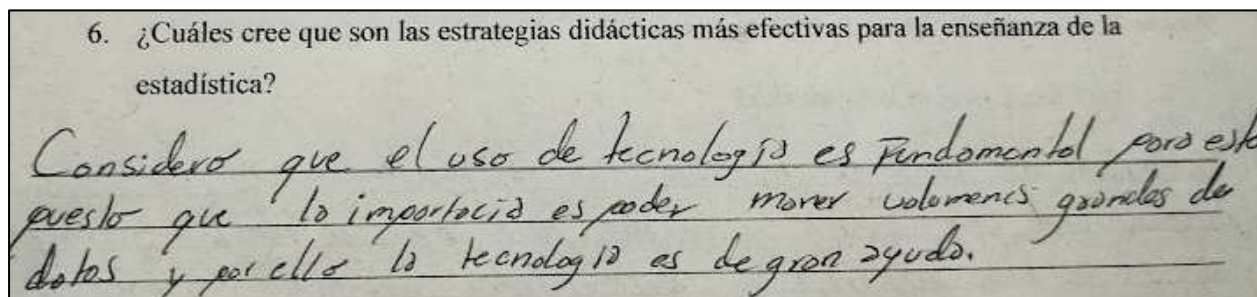 6. ¿Cuáles cree que son las estrategias didácticas más efectivas para la enseñanza de la
estadística?
Considero que el uso de tecnología es Fundamental para esto
puesto que la importacia es poder mover volumenes grandes de
datos y por ello la tecnología es de gran ayuda.